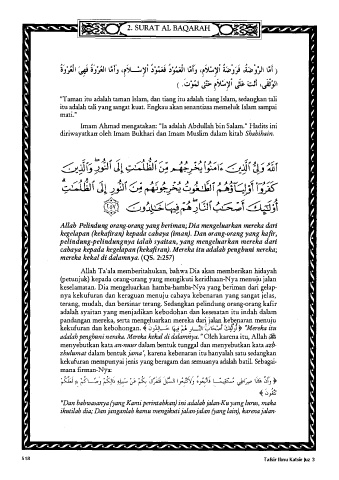 2. SURAT AL BAQARAH
( أَمَّا الرَّوْضَةُ، فَرَوْضَةُ الْإِسْلَامِ، وَأَمَّا الْعَمُوْدُ فَعَمُوْدُ الْإِسْلَامِ، وَأَمَّا الْعُرْوَةُ فَهِيَ الْعُرْوَةُ
الْوُثْقَى، أَنْتَ عَلَى الْإِسْلَامِ حَتَّى تَمُوْتَ. )
"Taman itu adalah taman Islam, dan tiang itu adalah tiang Islam, sedangkan tali
itu adalah tali yang sangat kuat. Engkau akan senantiasa memeluk Islam sampai
mati."
Imam Ahmad mengatakan: "Ia adalah Abdullah bin Salam." Hadits ini
diriwayatkan oleh Imam Bukhari dan Imam Muslim dalam kitab Shahihain.
ٱللَّهُ وَلِيُّ ٱلَّذِينَ ءَامَنُوا۟ يُخْرِجُهُم مِّنَ ٱلظُّلُمَٰتِ إِلَى ٱلنُّورِ ۖ وَٱلَّذِينَ
كَفَرُوٓا۟ أَوْلِيَآؤُهُمُ ٱلطَّٰغُوتُ يُخْرِجُونَهُم مِّنَ ٱلنُّورِ إِلَى ٱلظُّلُمَٰتِ ۗ
أُو۟لَٰٓئِكَ أَصْحَٰبُ ٱلنَّارِ ۖ هُمْ فِيهَا خَٰلِدُونَ ٢٥٧
Allah Pelindung orang-orang yang beriman; Dia mengeluarkan mereka dari
kegelapan (kekafiran) kepada cahaya (iman). Dan orang-orang yang kafir,
pelindung-pelindungnya ialah syaitan, yang mengeluarkan mereka dari
cahaya kepada kegelapan (kekafiran). Mereka itu adalah penghuni neraka;
mereka kekal di dalamnya. (QS. 2:257)
Allah Ta'ala memberitahukan, bahwa Dia akan memberikan hidayah
(petunjuk) kepada orang-orang yang mengikuti keridhaan-Nya menuju jalan
keselamatan. Dia mengeluarkan hamba-hamba-Nya yang beriman dari gelap-
nya kekufuran dan keraguan menuju cahaya kebenaran yang sangat jelas,
terang, mudah, dan bersinar terang. Sedangkan pelindung orang-orang kafir
adalah syaitan yang menjadikan kebodohan dan kesesatan itu indah dalam
pandangan mereka, serta mengeluarkan mereka dari jalan kebenaran menuju
kekufuran dan kebohongan. ﴿ أُولَٰئِكَ أَصْحَابُ النَّارِ هُمْ فِيهَا خَالِدُونَ ﴾ "Mereka itu
adalah penghuni neraka. Mereka kekal di dalamnya." Oleh karena itu, Allah ﷻ
menyebutkan kata an-nuur dalam bentuk tunggal dan menyebutkan kata azh-
zhulumat dalam bentuk jama', karena kebenaran itu hanyalah satu sedangkan
kekufuran mempunyai jenis yang beragam dan semuanya adalah batil. Sebagai-
mana firman-Nya:
﴿ وَأَنَّ هَٰذَا صِرَاطِي مُسْتَقِيمًا فَاتَّبِعُوهُ وَلَا تَتَّبِعُوا السُّبُلَ فَتَفَرَّقَ بِكُمْ عَن سَبِيلِهِ ذَٰلِكُمْ وَصَّاكُم بِهِ لَعَلَّكُمْ
تَتَّقُونَ ﴾
"Dan bahwasanya (yang Kami perintahkan) ini adalah jalan-Ku yang lurus, maka
ikutilah dia; Dan janganlah kamu mengikuti jalan-jalan (yang lain), karena jalan-
518
Tafsir Ibnu Katsir Juz 3